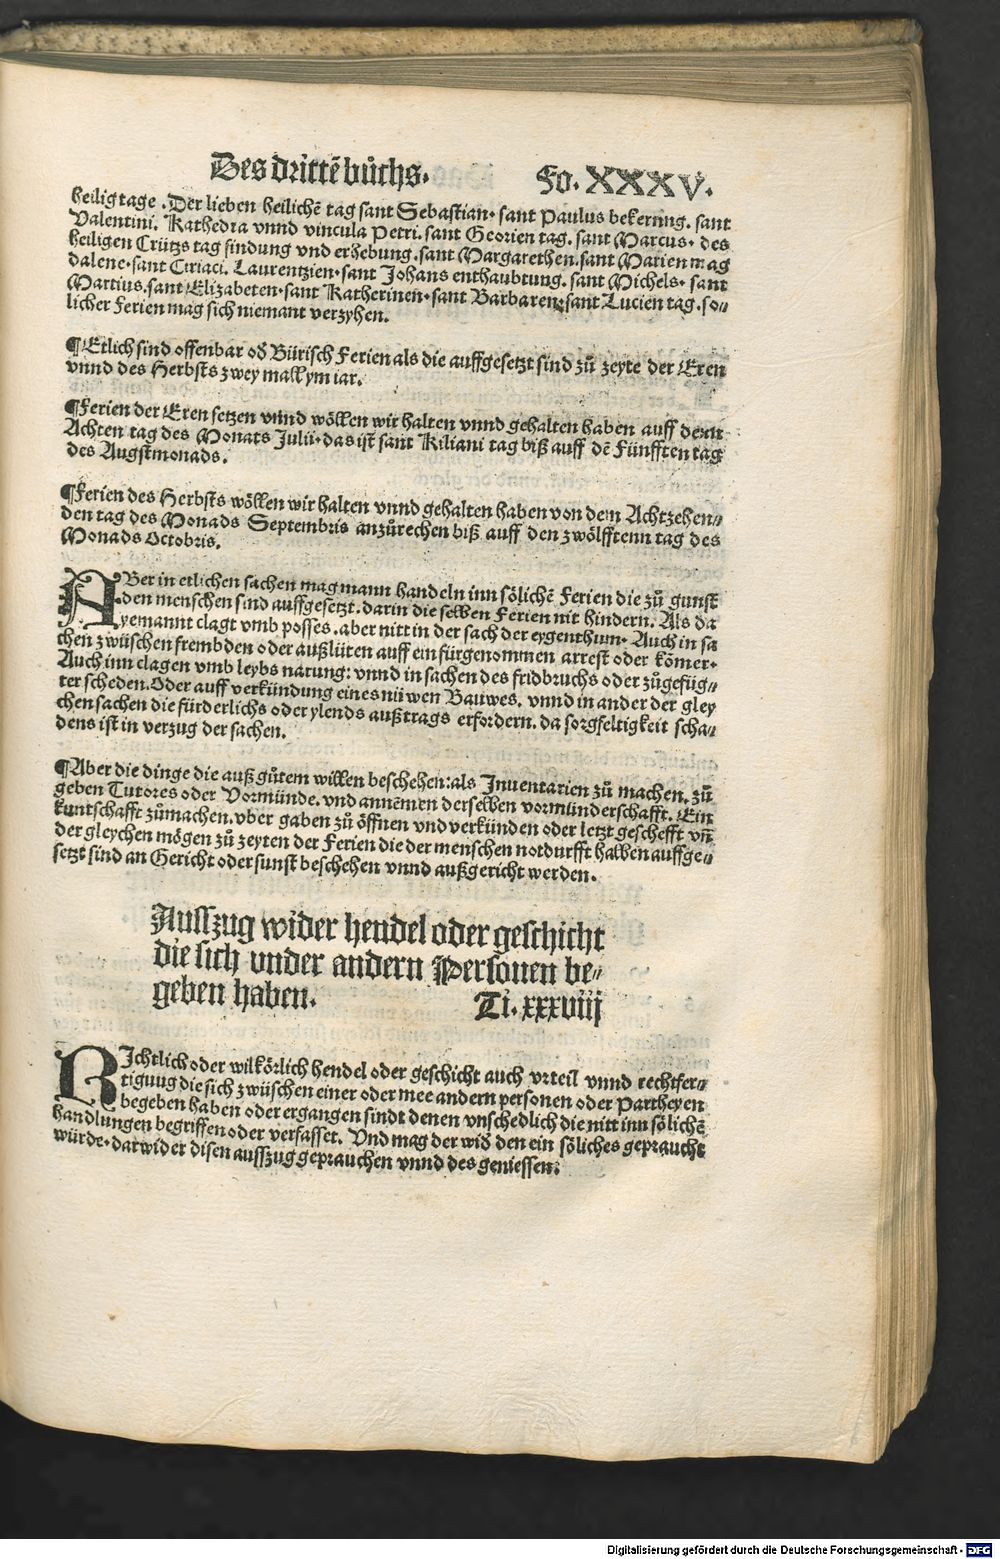 Des drittē bůchs. Fo. XXXV.
heilig tage. Der lieben heilichē tag sant Sebastian. sant Paulus bekerung. sant
Valentini. Kathedra vnnd vincula Petri. sant Georien tag. sant Marcus. des
heiligen Crützs tag findung vnd erhebung. sant Margarethen. sant Marien mag
dalene. sant Ciriaci. Laurentzien. sant Johans enthaubtung. sant Michels. sant
Martius. sant Elizabeten. sant Katherinen. sant Barbaren. sant Lucien tag. so⸗
licher Ferien mag sich niemant verzyhen.
¶Etlich sind offenbar oð Bürisch Ferien als die auffgesetzt sind zů zeyte der Eren
vnnd des Herbsts zwey mall ym iar.
¶Ferien der Eren setzen vnnd wöllen wir halten vnnd gehalten haben auff denn
Achten tag des Monats Julii. das ist sant Kiliani tag biß auff dē Fünfften tag
des Augstmonads.
¶Ferien des Herbsts wöllen wir halten vnnd gehalten haben von dem Achtzehen⸗
den tag des Monads Septembris anzůrechen biß auff den zwölfftenn tag des
Monads Octobris.
ABer in etlichen sachen mag mann handeln inn sölichē Ferien die zů gunst
den menschen sind auffgesetzt. darin die selben Ferien nit hindern. Als da
yemannt clagt vmb posses. aber nitt in der sach der eygenthum. Auch in sa
chen zwüschen frembden oder außlüten auff ein fürgenommen arrest oder kömer.
Auch inn clagen vmb leybs narung: vnnd in sachen des fridbruchs oder zůgefüg⸗
ter scheden. Oder auff verkündung eines nüwen Bauwes. vnnd in ander der gley
chen sachen die fürderlichs oder ylends außtrags erfordern. da sorgfeltigkeit scha⸗
dens ist in verzug der sachen.
¶Aber die dinge die auß gůtem willen beschehen: als Inuentarien zů machen. zů
geben Tutores oder Vormünde. vnd annemen derselben vormünderschafft. Ein
kuntschafft zůmachen. vber gaben zů öffnen vnd verkünden oder letzt geschefft vñ
der gleychen mögen zů zeyten der Ferien die der menschen notdurfft halben auffge⸗
setzt sind an Gericht oder sunst beschehen vnnd außgericht werden.
Ausszug wider hendel oder geschicht
die sich vnder andern Personen be⸗
geben haben. Ti. xxxviij
RIchtlich oder wilkörlich hendel oder geschicht auch vrteil vnnd rechtfer⸗
tigung die sich zwüschen einer oder mee andern personen oder Partheyen
begeben haben oder ergangen sindt denen vnschedlich die nitt inn sölichē
handlungen begriffen oder verfasset. Vnd mag der wið den ein söliches gepraucht
würde. darwider disen ausszug geprauchen vnnd des geniessen.
Digitalisierung gefördert durch die Deutsche Forschungsgemeinschaft - DFG